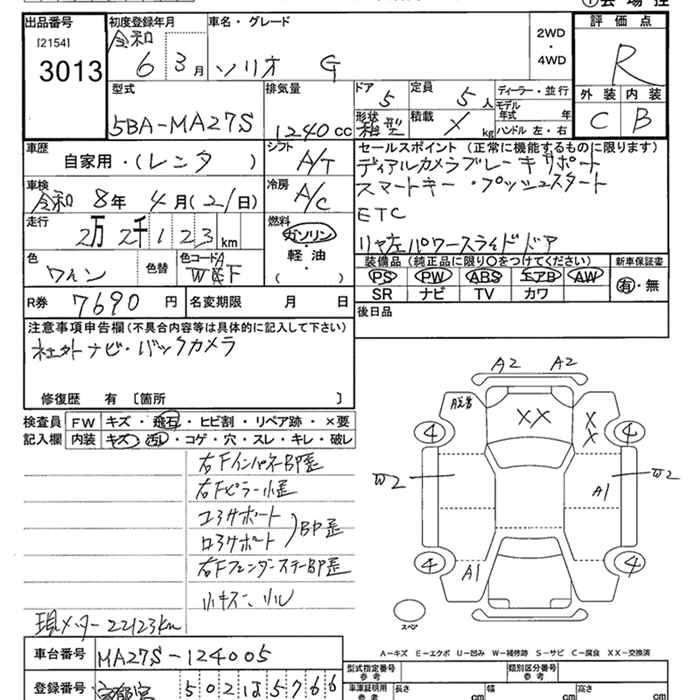 出品番号 初度登録年月 車名・グレード 2WD・4WD 評価点
[2154] 3013
令和 6 3月 ソリオ G
R
型式 排気量 ドア 定員 ディーラー・並行 外装 内装
5BA-MA27S 1240cc 5 5人 モデル年式 年 C B
形状 箱型 積載 × kg ハンドル 左・右
車歴 シフト セールスポイント (正常に機能するものに限ります)
自家用・(レンタ) A/T ディアルカメラブレーキサポート
車検 冷房 スマートキー・プッシュスタート
令和 8年 4月(21日) A/C ETC
走行 燃料 リヤ左パワースライドドア
2万2千123km ガソリン・軽油・( )
装備品 (純正品に限り○をつけてください) 新車保証書
PS PW ABS エアB AW 有・無
SR ナビ TV カワ
色 ワイン 色替 色コード
R券 7690円 名変期限 月 日 後日品
注意事項申告欄(不具合内容等は具体的に記入して下さい)
社外ナビ・バックカメラ
修復歴 有 〔箇所 〕
検査員記入欄 FW キズ・飛石・ヒビ割・リペア跡・×要
内装 キズ・汚れ・コゲ・穴・スレ・キレ・破レ
右FインパネBP歪
右Fピラー小歪
コアサポート
ロアサポート )BP歪
右FフェンダーステーBP歪
小キズ、小ル
現メーター22123km
A2 A2
XX
X
X
4 4
W2 W2
A1
4 4
A1
スペア
A-キズ E-エクボ U-凹み W-補修跡 S-サビ C-腐食 XX-交換済
車台番号 MA27S-124005
型式指定番号 参考 類別区分番号 参考
登録番号 宇都宮 502は5766
車庫証明用 参考 長さ cm 幅 cm 高さ cm